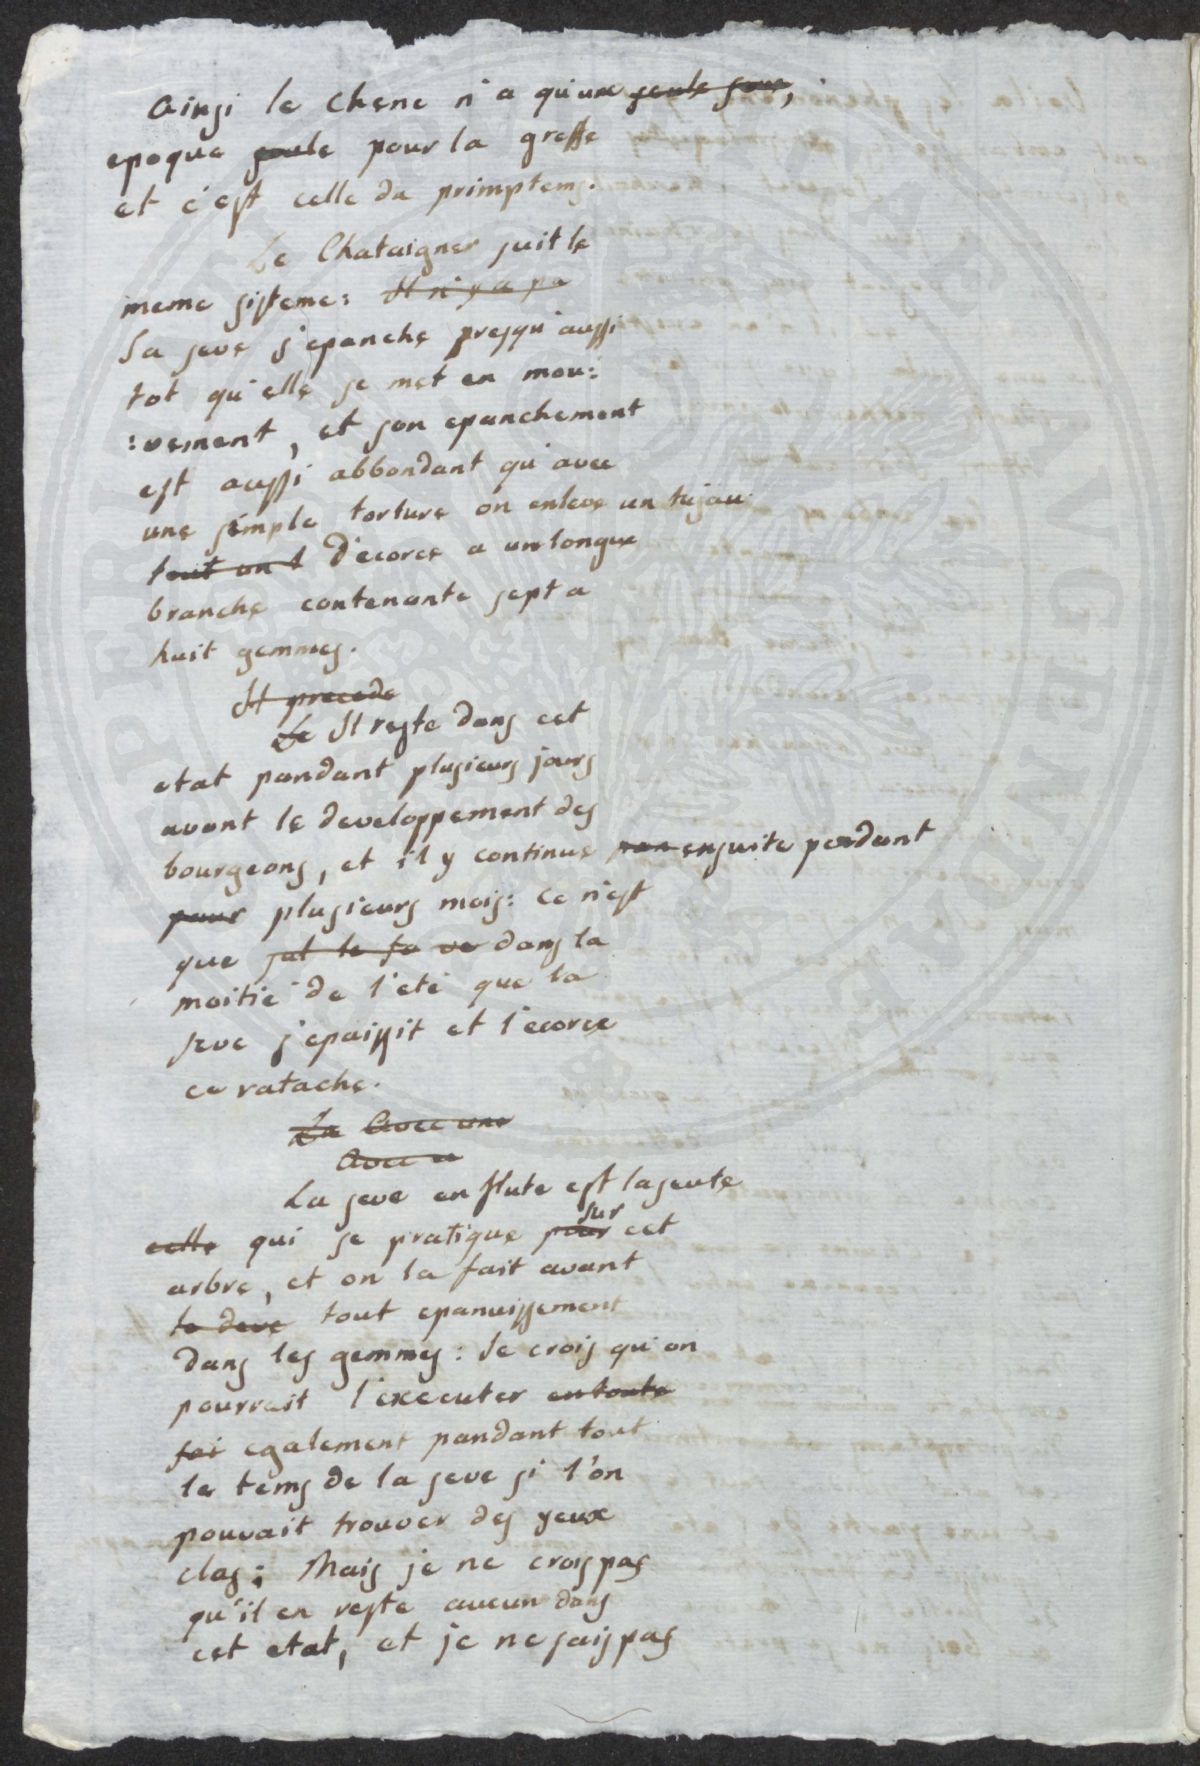 Ainsi le Chene n'a qu'une ~~seule seve~~,
epoque ~~seule~~ pour la greffe
et c'est celle du primptems.
Le Chataigner suit le
meme sisteme: ~~Il n'y a pa~~
Sa seve s'epanche presqu'aussi
tot qu'elle se met en mou:
:vement, et son epanchement
est aussi abbondant qu'avec
une simple torture on enleve un tujau
~~tout un t~~ d'ecorce a une longue
branche contenante sept a
huit gemmes.
~~Il precede~~
~~Le~~ Il reste dans cet
etat pandant plusieurs jours
avant le developpement des
bourgeons, et il y continue ~~pan~~ ensuite pendant
~~pour~~ plusieurs mois: ce n'est
que dans la
moitié de l'eté que la
seve s'epaissit et l'ecorce
ce ratache.
~~La Avec une~~
~~Avec u~~
La seve en flute est la seule
~~celle~~ qui se pratique ~~pour~~ sur cet
arbre, et on la fait avant
~~le deve~~ tout epanuissement
dans les gemmes: Je crois qu'on
pourrait l'executer ~~en toute~~
~~foi~~ egalement pandant tout
le tems de la seve si l'on
pouvait trouver des yeux
clos; Mais je ne crois pas
qu'il en reste aucun dans
cet etat, et je ne sais pas